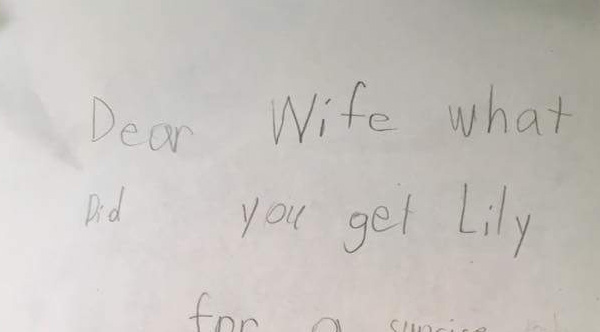 Dear Wife what
Did you get Lily
for a